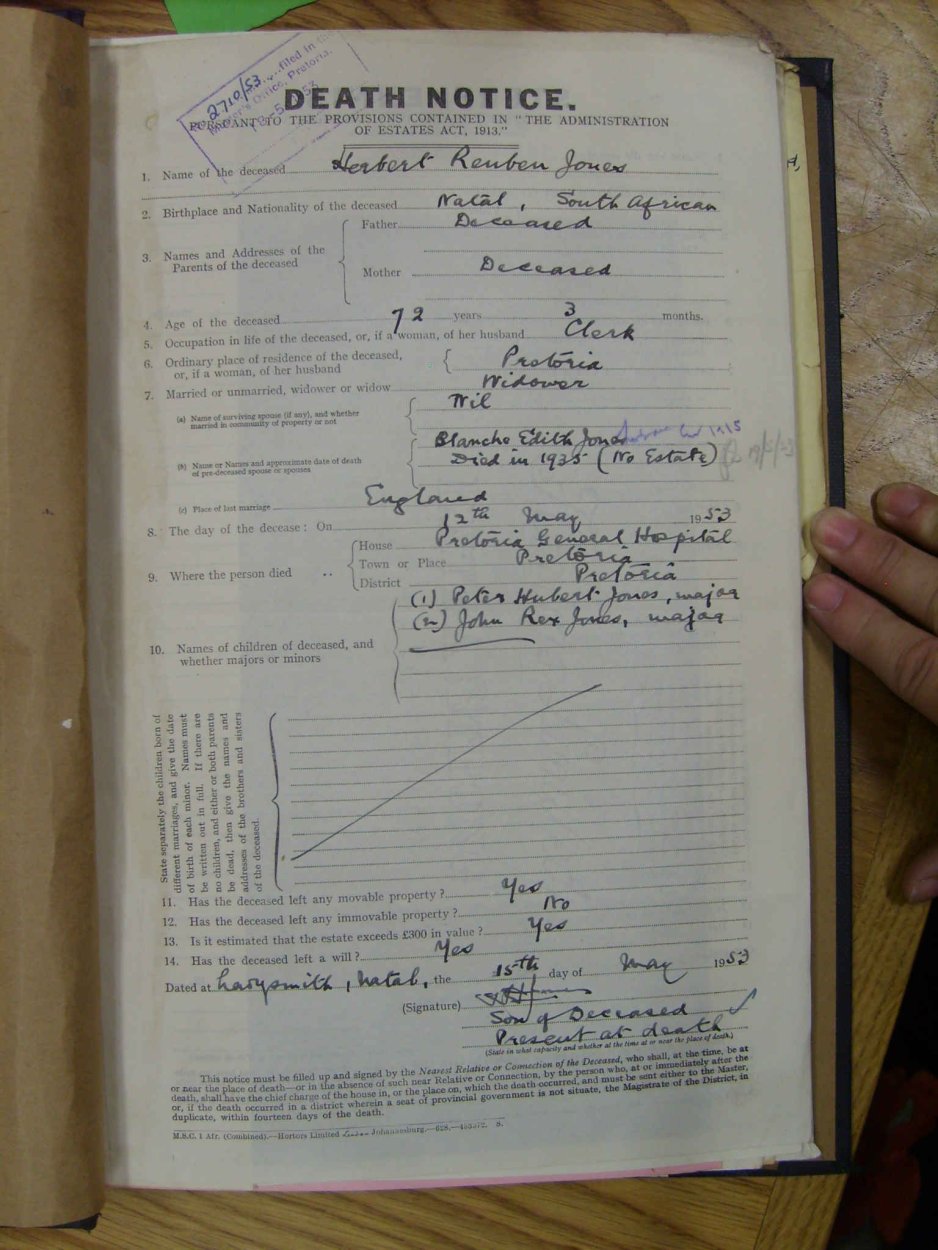 2710/53 filed in the
Master's Office, Pretoria.
DEATH NOTICE.
PURSUANT TO THE PROVISIONS CONTAINED IN "THE ADMINISTRATION
OF ESTATES ACT, 1913."
1. Name of the deceased Herbert Reuben Jones
2. Birthplace and Nationality of the deceased Natal, South African
3. Names and Addresses of the Parents of the deceased
Father Deceased
Mother Deceased
4. Age of the deceased 72 years 3 months.
5. Occupation in life of the deceased, or, if a woman, of her husband Clerk
6. Ordinary place of residence of the deceased,
or, if a woman, of her husband Pretoria
7. Married or unmarried, widower or widow Widower
(a) Name of surviving spouse (if any), and whether
married in community of property or not Nil
(b) Name or Names and approximate date of death
of pre-deceased spouse or spouses
Blanche Edith Jones
Died in 1935 (No Estate)
(c) Place of last marriage England
8. The day of the decease: On 12th May 1953
9. Where the person died
House Pretoria General Hospital
Town or Place Pretoria
District Pretoria
10. Names of children of deceased, and
whether majors or minors
(1) Peter Hubert Jones, major
(2) John Rex Jones, major
State separately the children born of
different marriages, and give the date
of birth of each minor. Names must
be written out in full. If there are
no children, and either or both parents
be dead, then give the names and
addresses of the brothers and sisters
of the deceased.
11. Has the deceased left any movable property? Yes
12. Has the deceased left any immovable property? No
13. Is it estimated that the estate exceeds £300 in value? Yes
14. Has the deceased left a will? Yes
Dated at Ladysmith, Natal, the 15th day of May 1953
(Signature)
Son of Deceased
Present at death
(State in what capacity and whether at the time at or near the place of death.)
This notice must be filled up and signed by the Nearest Relative or Connection of the Deceased, who shall, at the time, be at
or near the place of death—or in the absence of such near Relative or Connection, by the person who, at or immediately after the
death, shall have the chief charge of the house in, or the place on, which the death occurred, and must be sent either to the Master,
or, if the death occurred in a district wherein a seat of provincial government is not situate, the Magistrate of the District, in
duplicate, within fourteen days of the death.
M.S.C. 1 Afr. (Combined).—Hortors Limited Johannesburg.—628.—453372. S.